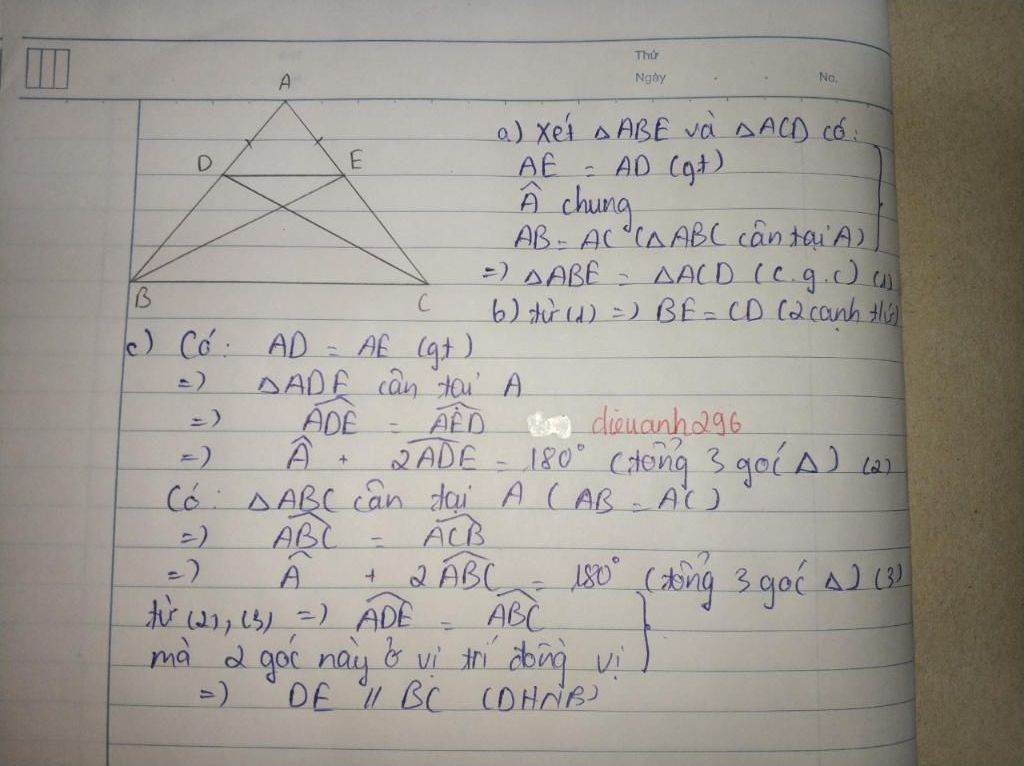 Thứ
Ngày . . No.
A
D E
B C
a) Xét △ABE và △ACD có:
AE = AD (gt)
Â chung
AB = AC (△ABC cân tại A)
=) △ABE = △ACD (c.g.c) (1)
b) từ (1) =) BE = CD (2 cạnh
c) Có: AD = AE (gt)
=) △ADE cân tại A
=) ADE = AED
dieuanh296
=) Â + 2ADE = 180° (tổng 3 góc △) (2)
Có: △ABC cân tại A (AB = AC)
=) ABC = ACB
=) Â + 2ABC = 180° (tổng 3 góc △) (3)
từ (2), (3) =) ADE = ABC
mà 2 góc này ở vị trí đồng vị
=) DE // BC (DHNB)